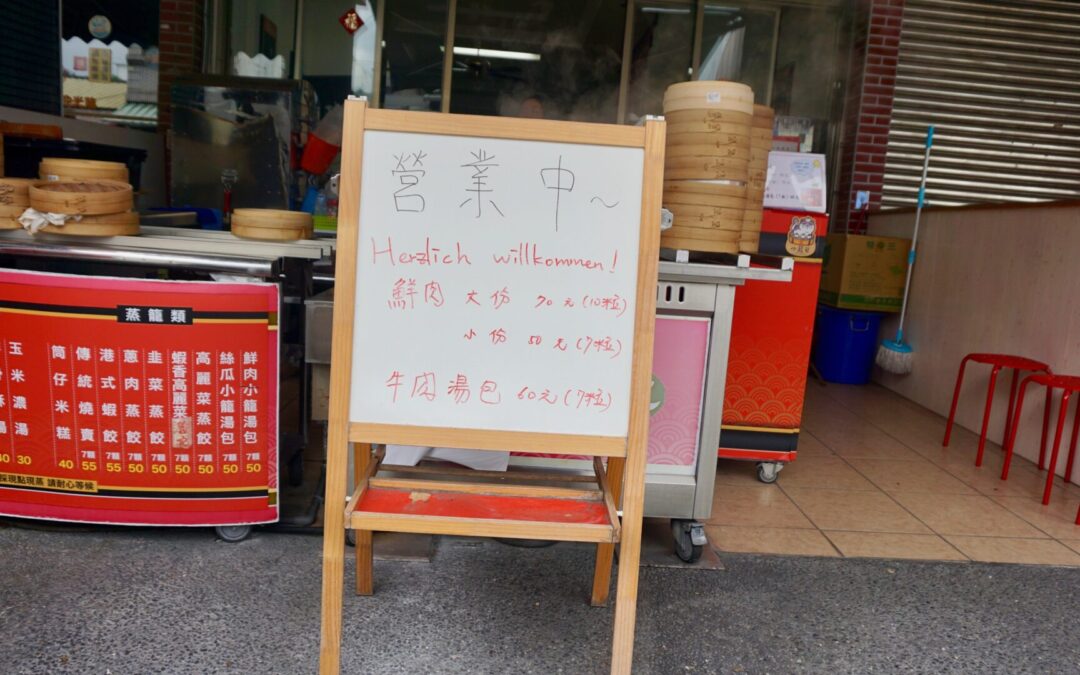 營業中~
Herzlich willkommen!
鮮肉 大份 70元(10粒)
小份 50元(7粒)
牛肉湯包 60元(7粒)
蒸籠類
鮮肉小籠湯包 7顆 50
絲瓜小籠湯包 7顆 50
高麗菜蒸餃 7顆 50
蝦香高麗菜 7顆 50
韭菜蒸餃 7顆 50
蔥肉蒸餃 7顆 50
港式蝦餃 7顆 55
傳統燒賣 7顆 55
筒仔米糕 40
玉米濃湯 30
40
採現點現蒸 請耐心等候